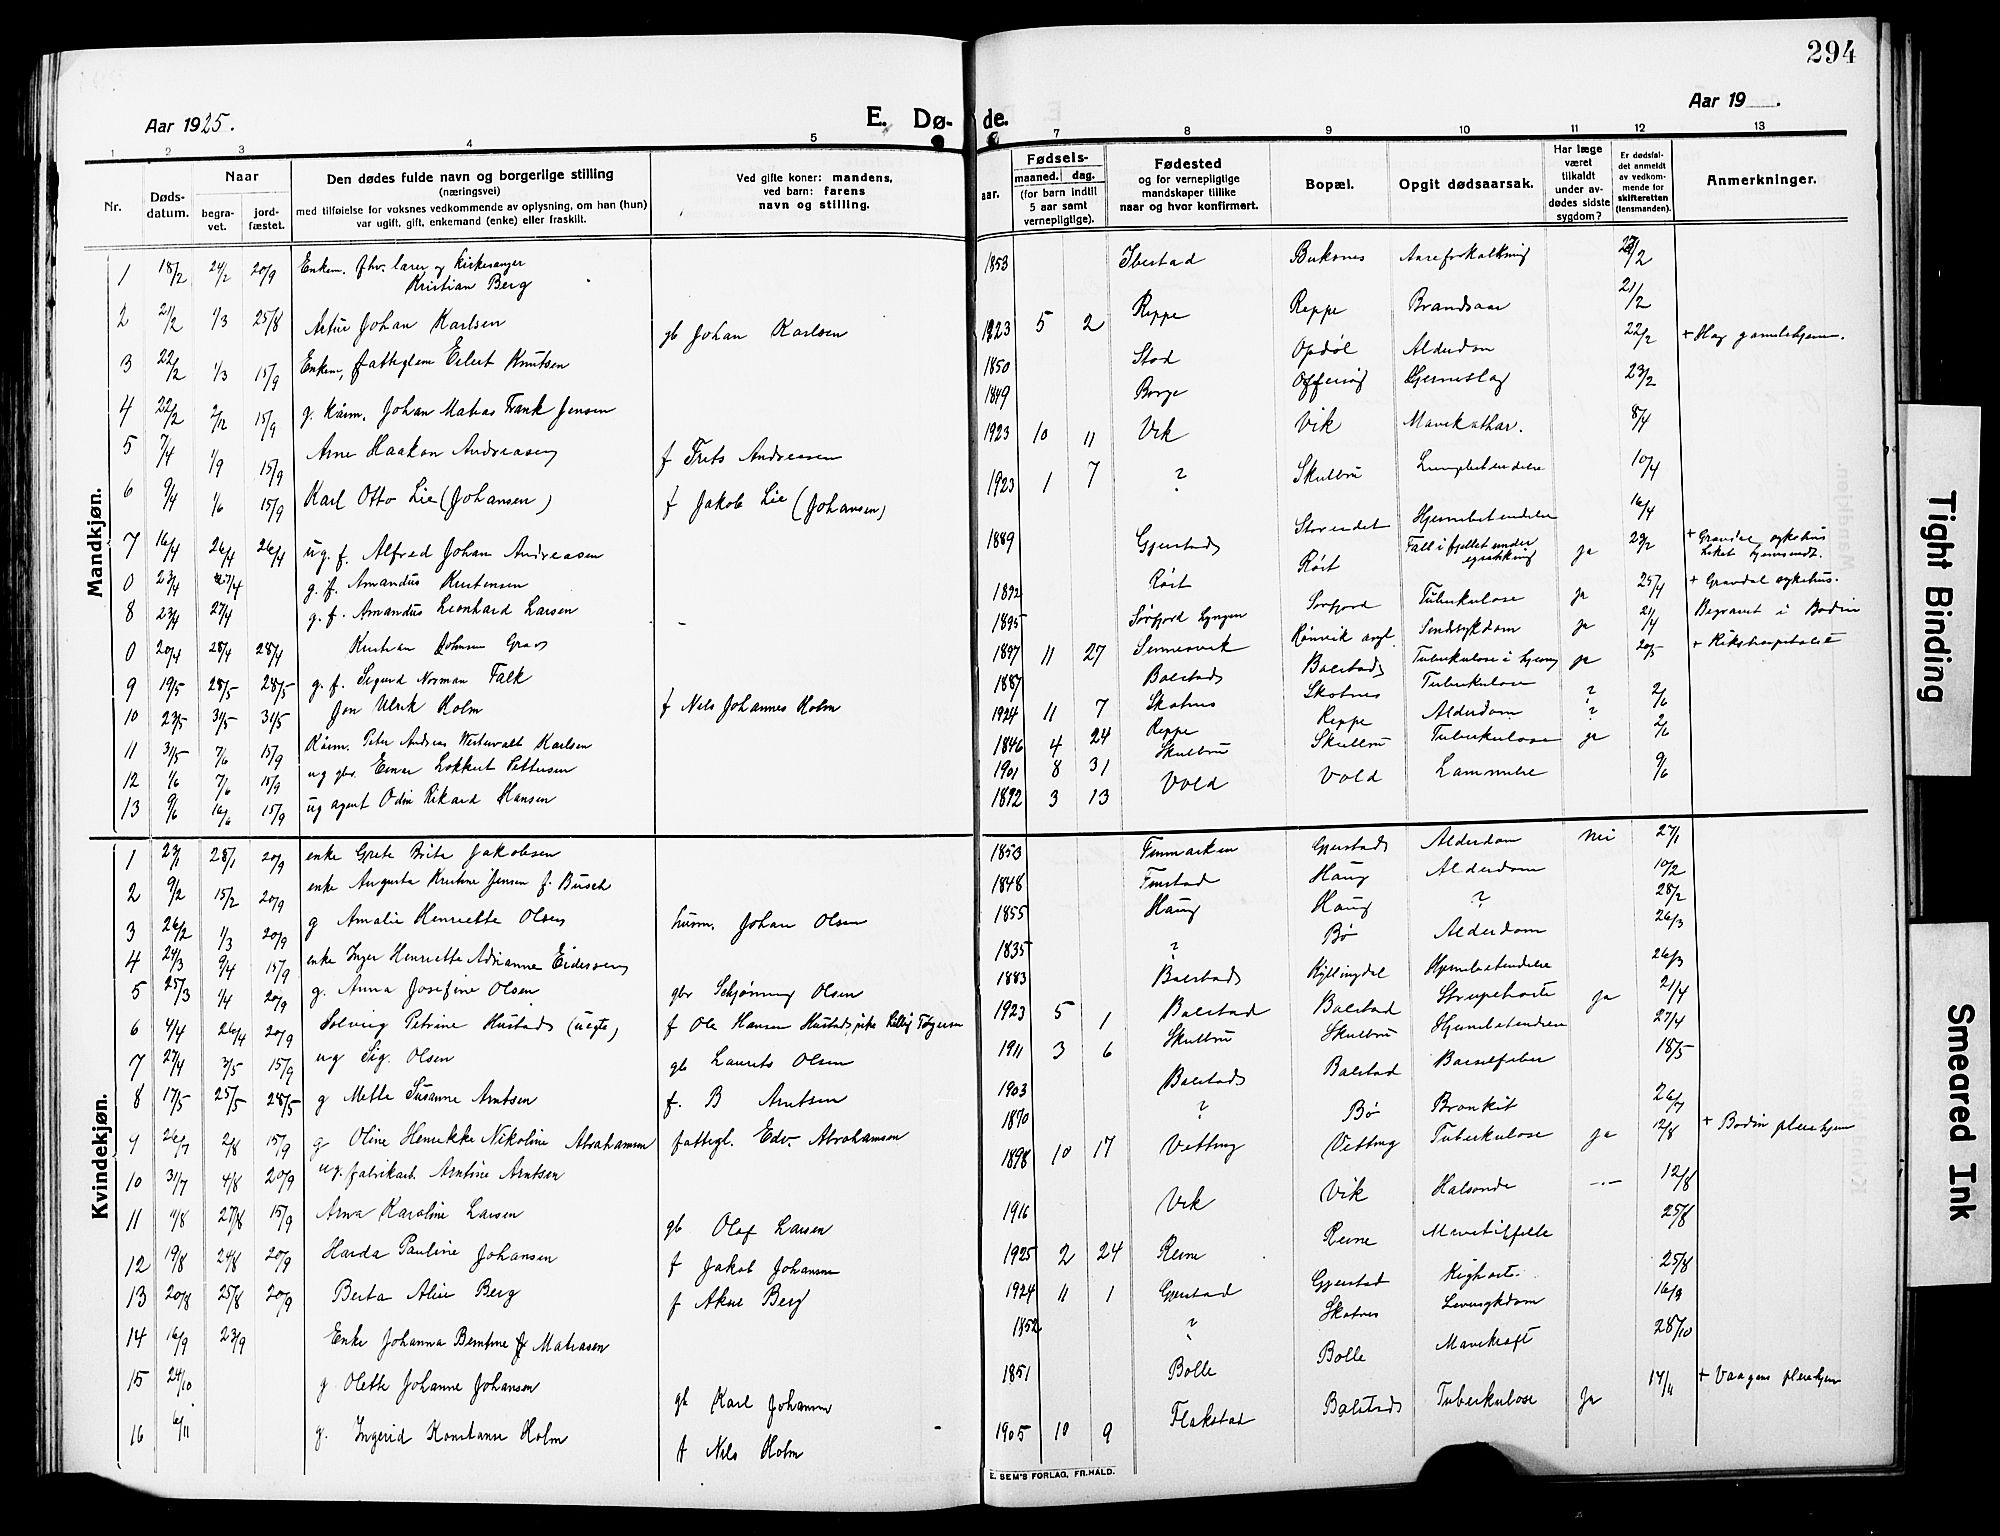 294
Aar 1925.
E. Dø-
de.
Aar 19   .
1 2 3 4 5 6 7 8 9 10 11 12 13
Nr.
Døds-
datum.
Naar
begra-
vet.
jord-
fæstet.
Den dødes fulde navn og borgerlige stilling
(næringsvei)
med tilføielse for voksnes vedkommende av oplysning, om han (hun)
var ugift, gift, enkemand (enke) eller fraskilt.
Ved gifte koner: mandens,
ved barn: farens
navn og stilling.
Fødsels-
aar.
maaned. dag.
(for barn indtil
5 aar samt
vernepligtige).
Fødested
og for vernepligtige
mandskaper tillike
naar og hvor konfirmert.
Bopæl.
Opgit dødsaarsak.
Har læge
været
tilkaldt
under av-
dødes sidste
sygdom?
Er dødsfal-
det anmeldt
av vedkom-
mende for
skifteretten
(lensmanden).
Anmerkninger.
Mandkjøn.
1 18/2 24/2 20/9 Enkem. fhv. lærer og kirkesanger
Kristian Berg 1853 Ibestad Buksnes Aareforkalkning
2 21/2 1/3 25/8 Artur Johan Karlsen gb Johan Karlsen 1923 5 2 Reppe Reppe Brandsaar 21/2
3 22/2 1/3 15/9 Enkem, fattiglem Eilert Knutsen 1850 Stod Opdøl Alderdom 22/2 + Hag gamlehjem.
4 22/2 15/9 g. Kårm. Johan Matias Frank Jensen 1849 Borge Offersøy Hjerneslag 23/2
5 7/4 1/9 15/9 Arne Haakon Andreasen f Frits Andreasen 1923 10 11 Vik Vik Mavekathar. 8/4
6 9/4 1/6 15/9 Karl Otto Lie (Johansen) f Jakob Lie (Johansen) 1923 1 7 ? Skulbru Lungebetendelse 10/4
7 16/4 26/4 26/4 ug. f. Alfred Johan Andreasen 1889 Gjerstad Hjernebetendelse 16/4
0 23/4 g. f. Amandus Kristensen 1892 Røst Røst Fald i fjellet under
ja + Gravdal sykehus
8 23/4 27/4 g. f. Amandus Leonhard Larsen 1895 Sørfjord Lyngen Sørfjord Tuberkulose ja 25/4 + Gravdal sykehus.
0 20/4 28/4 28/4 Kristian Johnsen 1897 11 27 Rønvik asyl Sindsykdom ja 21/4 Begravet i Bodin
9 19/5 28/5 28/5 g. f. Sigurd Norman Falk 1887 Balstad Balstad Tuberkulose i ja 20/5 + Rikshospitalet
10 23/5 31/5 31/5 Jon Ulrik Holm f Nils Johannes Holm 1924 11 7 Skotnes Skotnes Tuberkulose ? 2/6
11 31/5 7/6 15/9 Kårm. Peter Andreas Karlsen 1846 4 24 Reppe Reppe Alderdom ? 2/6
12 1/6 7/6 15/9 ug gbr. Einar Lokkert Pettersen 1901 8 31 Skulbru Skulbru Tuberkulose ja
13 9/6 16/6 15/9 ug agent Odin Rikard Hansen 1892 3 13 Vold Vold Lammelse 9/6
Kvindekjøn.
1 23/1 28/1 20/9 enke Grete Brita Jakobsen 1853 Finmarken Gjerstad Alderdom nei 27/1
2 9/2 15/2 20/9 enke Augusta Kristine Jensen f. Busch 1848 Haug Alderdom 10/2
3 26/2 1/3 20/9 g Amalie Henriette Olsen husm. Johan Olsen 1855 Haug Haug ? 28/2
4 24/3 9/4 15/9 enke Inger Henriette Adrianne Eidessen 1835 ? Bø Alderdom 26/3
5 25/3 1/4 20/9 g. Anna Josefine Olsen gbr Schjønning Olsen 1883 Balstad Kyllingdal Hjernebetendelse 26/3
6 4/4 26/4 20/9 Solveig Petrine Hustad (uegte) f Ole Hansen Hustad, 1923 5 1 Balstad Balstad Strupehoste ja 21/4
7 27/4 3/5 15/9 ug Sig. Olsen gb Laurits Olsen 1911 3 6 Skulbru Skulbru Hjernebetendelse 27/4
8 17/5 25/5 28/5 g Mette Susanne Arntsen f. B Arntsen 1903 Balstad Balstad Barselfeber 18/5
9 26/7 2/8 15/9 g Oline Henrikke Nikoline Abrahamsen fattigl. Edv. Abrahamsen 1870 ? Bø Bronkit 26/7
10 31/7 4/8 20/9 ug. fabrikarb. Arntine Arntsen 1898 10 17 Vetting Vetting Tuberkulose ja 12/8 + Bodin pleiehjem
11 4/8 27/8 15/9 Arna Karoline Larsen gb Olaf Larsen 1916 Vik Vik Halsonde —"— 12/8
12 19/8 24/8 20/9 Harda Pauline Johansen f Jakob Johansen 1925 2 24 Reine Reine Mavetilfelle 25/8
13 20/8 25/8 20/9 Berta Aline Berg f Aksel Berg 1924 11 1 Gjerstad Gjerstad Kighoste 25/8
14 16/9 23/9 Enke Johanna Berntine Matiasen 1852 ? Skotnes Leversykdom
15 24/10 g. Olette Johanne Johansen gb Karl Johansen 1851 Bolle Bolle Mavekræft 28/10
16 6/11 g. Ingerid Konstanse Holm f Nils Holm 1905 10 9 Flakstad Balstad Tuberkulose Ja 17/11 + Vaagens pleiehjem
E. SEM'S FORLAG, FR.HALD.
Tight Binding
Smeared Ink